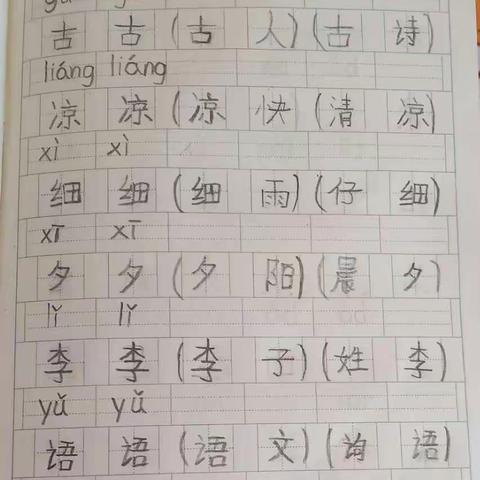 古 古 (古 人) (古 诗)
liáng liáng
凉 凉 (凉 快) (清 凉)
xì xì
细 细 (细 雨) (仔 细)
xī xī
夕 夕 (夕 阳) (晨 夕)
lǐ lǐ
李 李 (李 子) (姓 李)
yǔ yǔ
语 语 (语 文) (询 语)